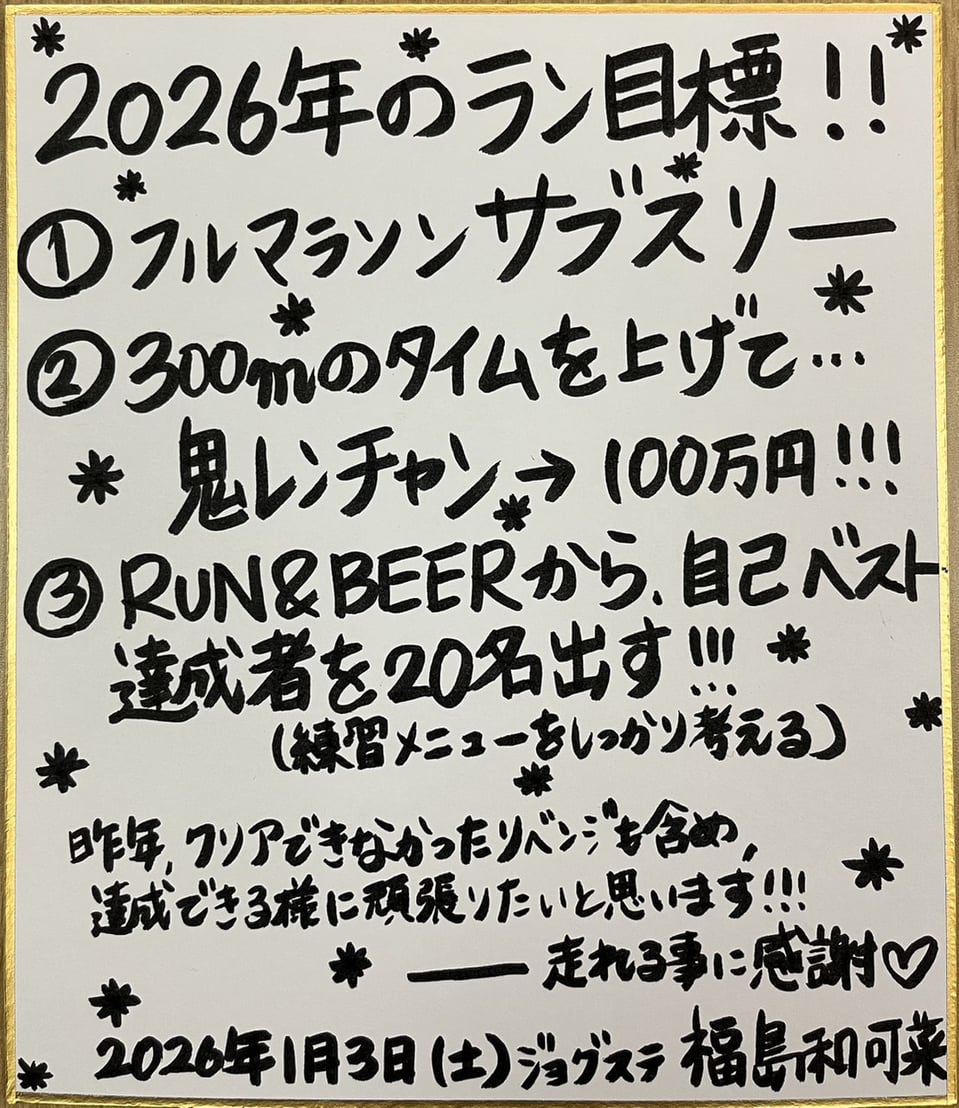 2026年のラン目標!!
①フルマラソンサブスリー
②300mのタイムを上げて…
鬼レンチャン→100万円!!!
③RUN&BEERから、自己ベスト
達成者を20名出す!!!
(練習メニューをしっかり考える)
昨年、クリアできなかったリベンジも含め、
達成できる様に頑張りたいと思います!!!
――走れる事に感謝♡
2026年1月3日(土)ジョグステ 福島和可菜